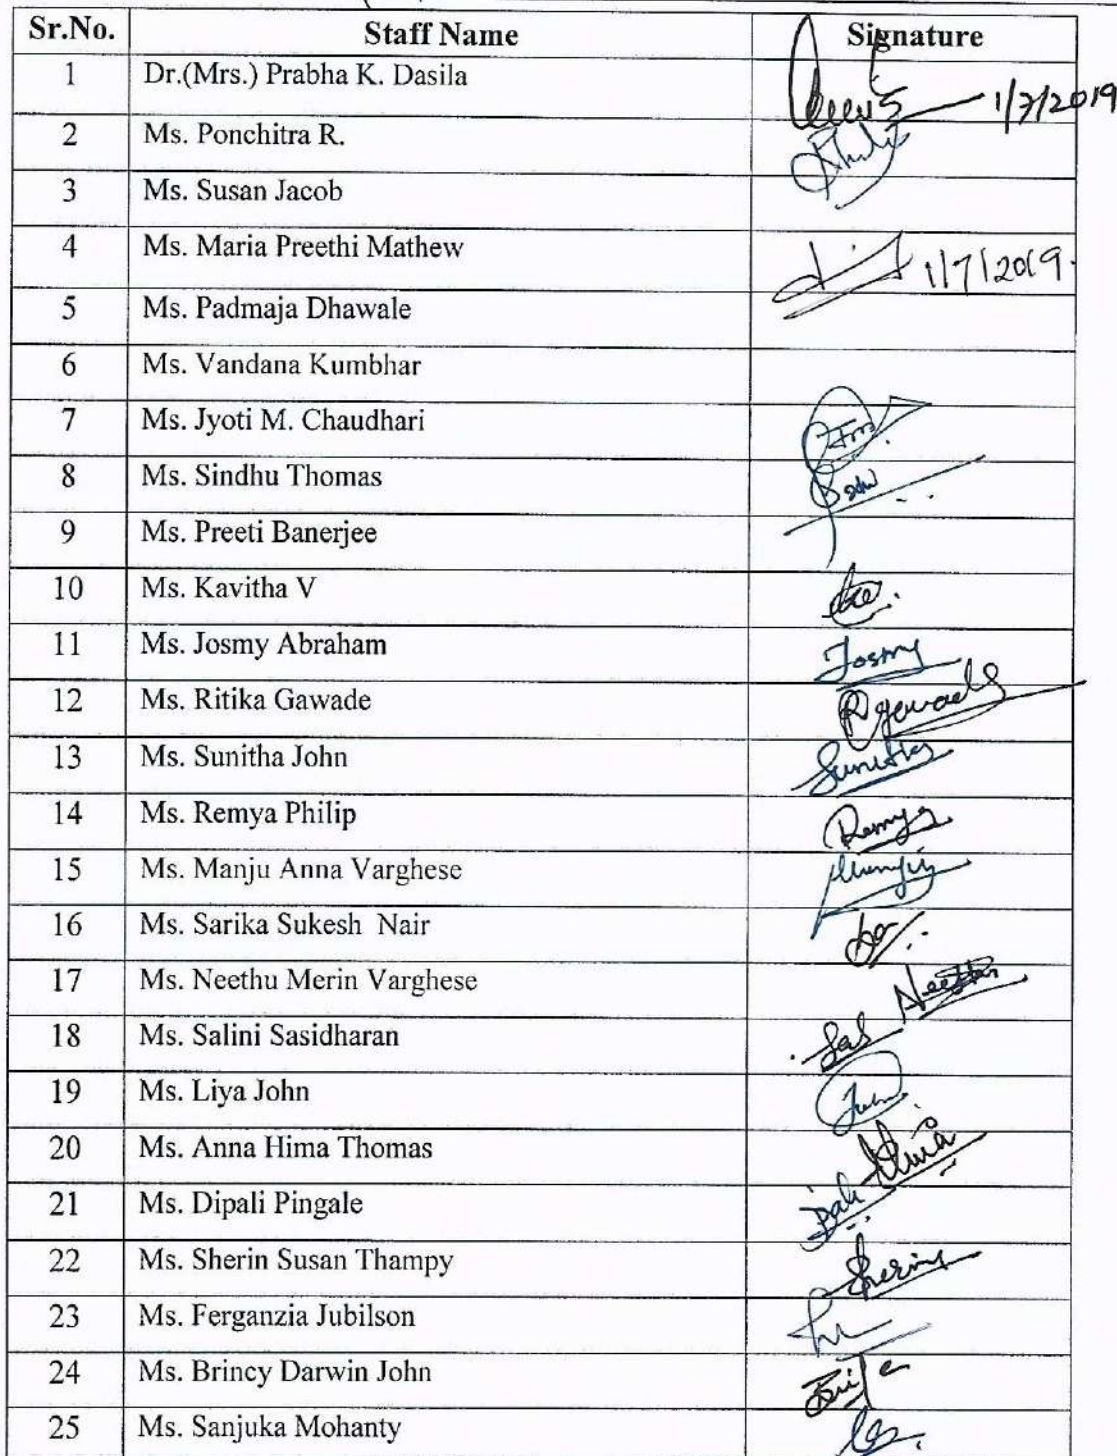 Sr.No. Staff Name Signature
1 Dr.(Mrs.) Prabha K. Dasila 1/7/2019
2 Ms. Ponchitra R.
3 Ms. Susan Jacob
4 Ms. Maria Preethi Mathew 1/7/2019
5 Ms. Padmaja Dhawale
6 Ms. Vandana Kumbhar
7 Ms. Jyoti M. Chaudhari
8 Ms. Sindhu Thomas
9 Ms. Preeti Banerjee
10 Ms. Kavitha V
11 Ms. Josmy Abraham Josmy
12 Ms. Ritika Gawade
13 Ms. Sunitha John
14 Ms. Remya Philip Remya
15 Ms. Manju Anna Varghese
16 Ms. Sarika Sukesh Nair
17 Ms. Neethu Merin Varghese Neethu
18 Ms. Salini Sasidharan
19 Ms. Liya John
20 Ms. Anna Hima Thomas
21 Ms. Dipali Pingale
22 Ms. Sherin Susan Thampy
23 Ms. Ferganzia Jubilson
24 Ms. Brincy Darwin John
25 Ms. Sanjuka Mohanty